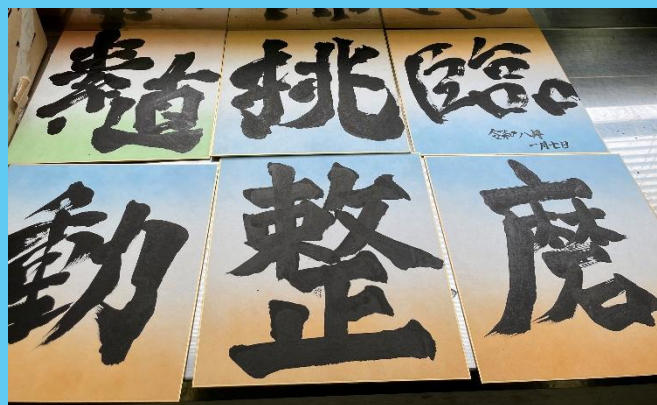 素直
挑
臨。
令和八年
一月七日
動
整
磨